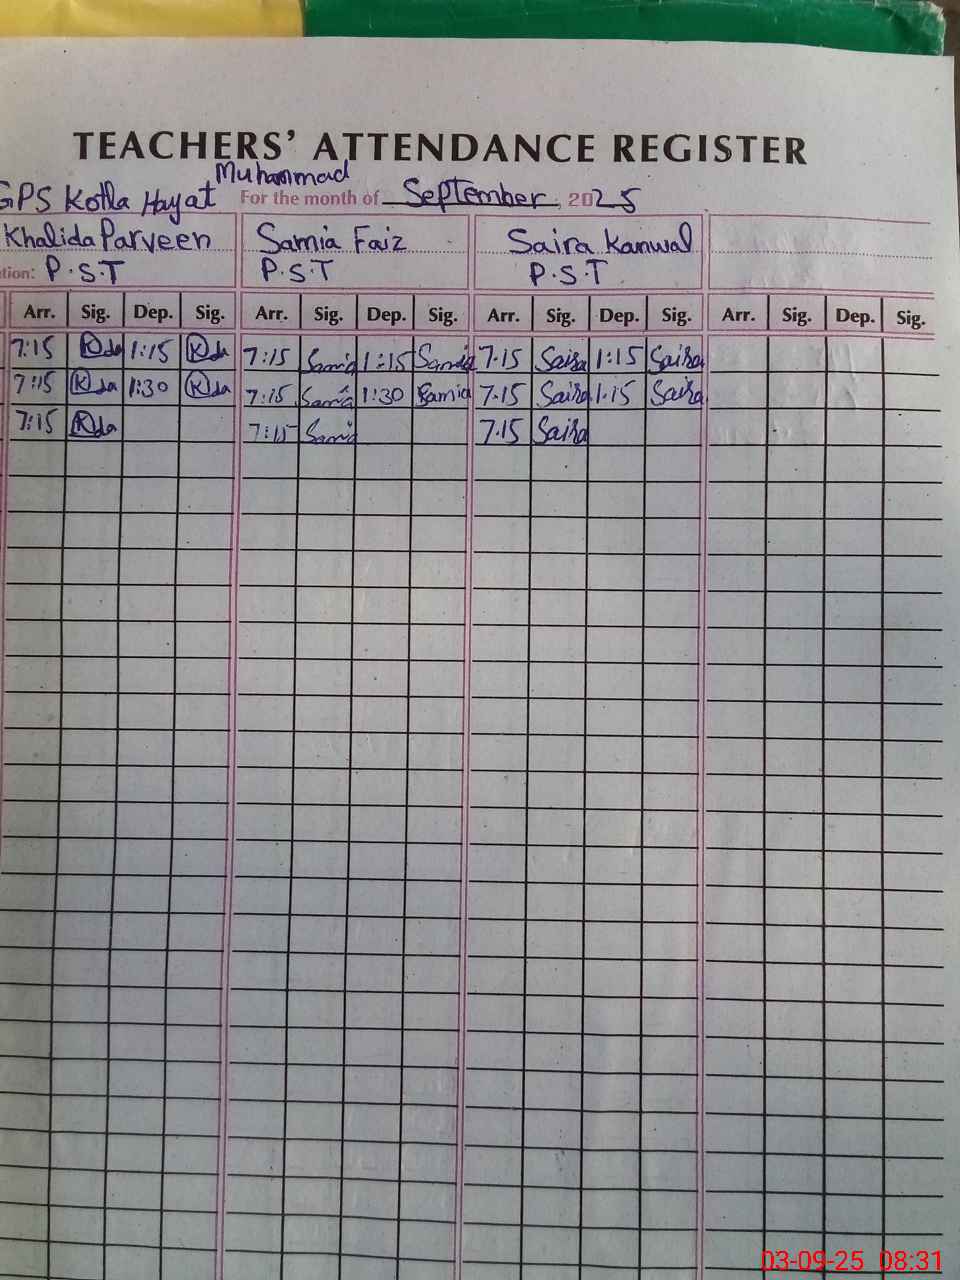 TEACHERS' ATTENDANCE REGISTER
Muhammad
GPS Kotla Hayat For the month of September, 2025
Khalida Parveen Samia Faiz Saira Kanwal
tion: P.S.T P.S.T P.S.T
Arr. Sig. Dep. Sig. Arr. Sig. Dep. Sig. Arr. Sig. Dep. Sig. Arr. Sig. Dep. Sig.
7:15 Kda 1:15 Kda 7:15 Samia 1:15 Samia 7.15 Saira 1:15 Saira
7:15 Kda 1:30 Kda 7:15 Samia 1:30 Samia 7.15 Saira 1.15 Saira
7:15 Kda 7:15 Samia 7.15 Saira
03-09-25 08:31